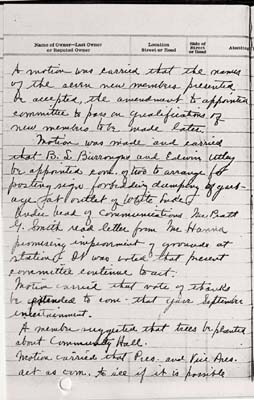 Name of Owner—Last Owner
or Reputed Owner
Location
Street or Road
Side of
Street
or Road
A motion was carried that the names
of the seven new members presented
be accepted, the amendment to appointed
committee to pass on qualifications of
new members to be made later.
Motion was made and carried
that B. S. Burroughs and Edwin Utley
be appointed com. of two to arrange for
posting sign forbidding dumping of garb-
age at outlet of White
Under head of Communications Mr.
G. Smith read letter from Mr. Hanna
promising improvement of grounds at
station. It was voted that present
committee continue to act.
Motion carried that vote of thanks
be extended to com. that gave September
entertainment.
A member suggested that trees be planted
about Community Hall.
Motion carried that Pres. and Vice Pres.
act as com. to see if it is possible